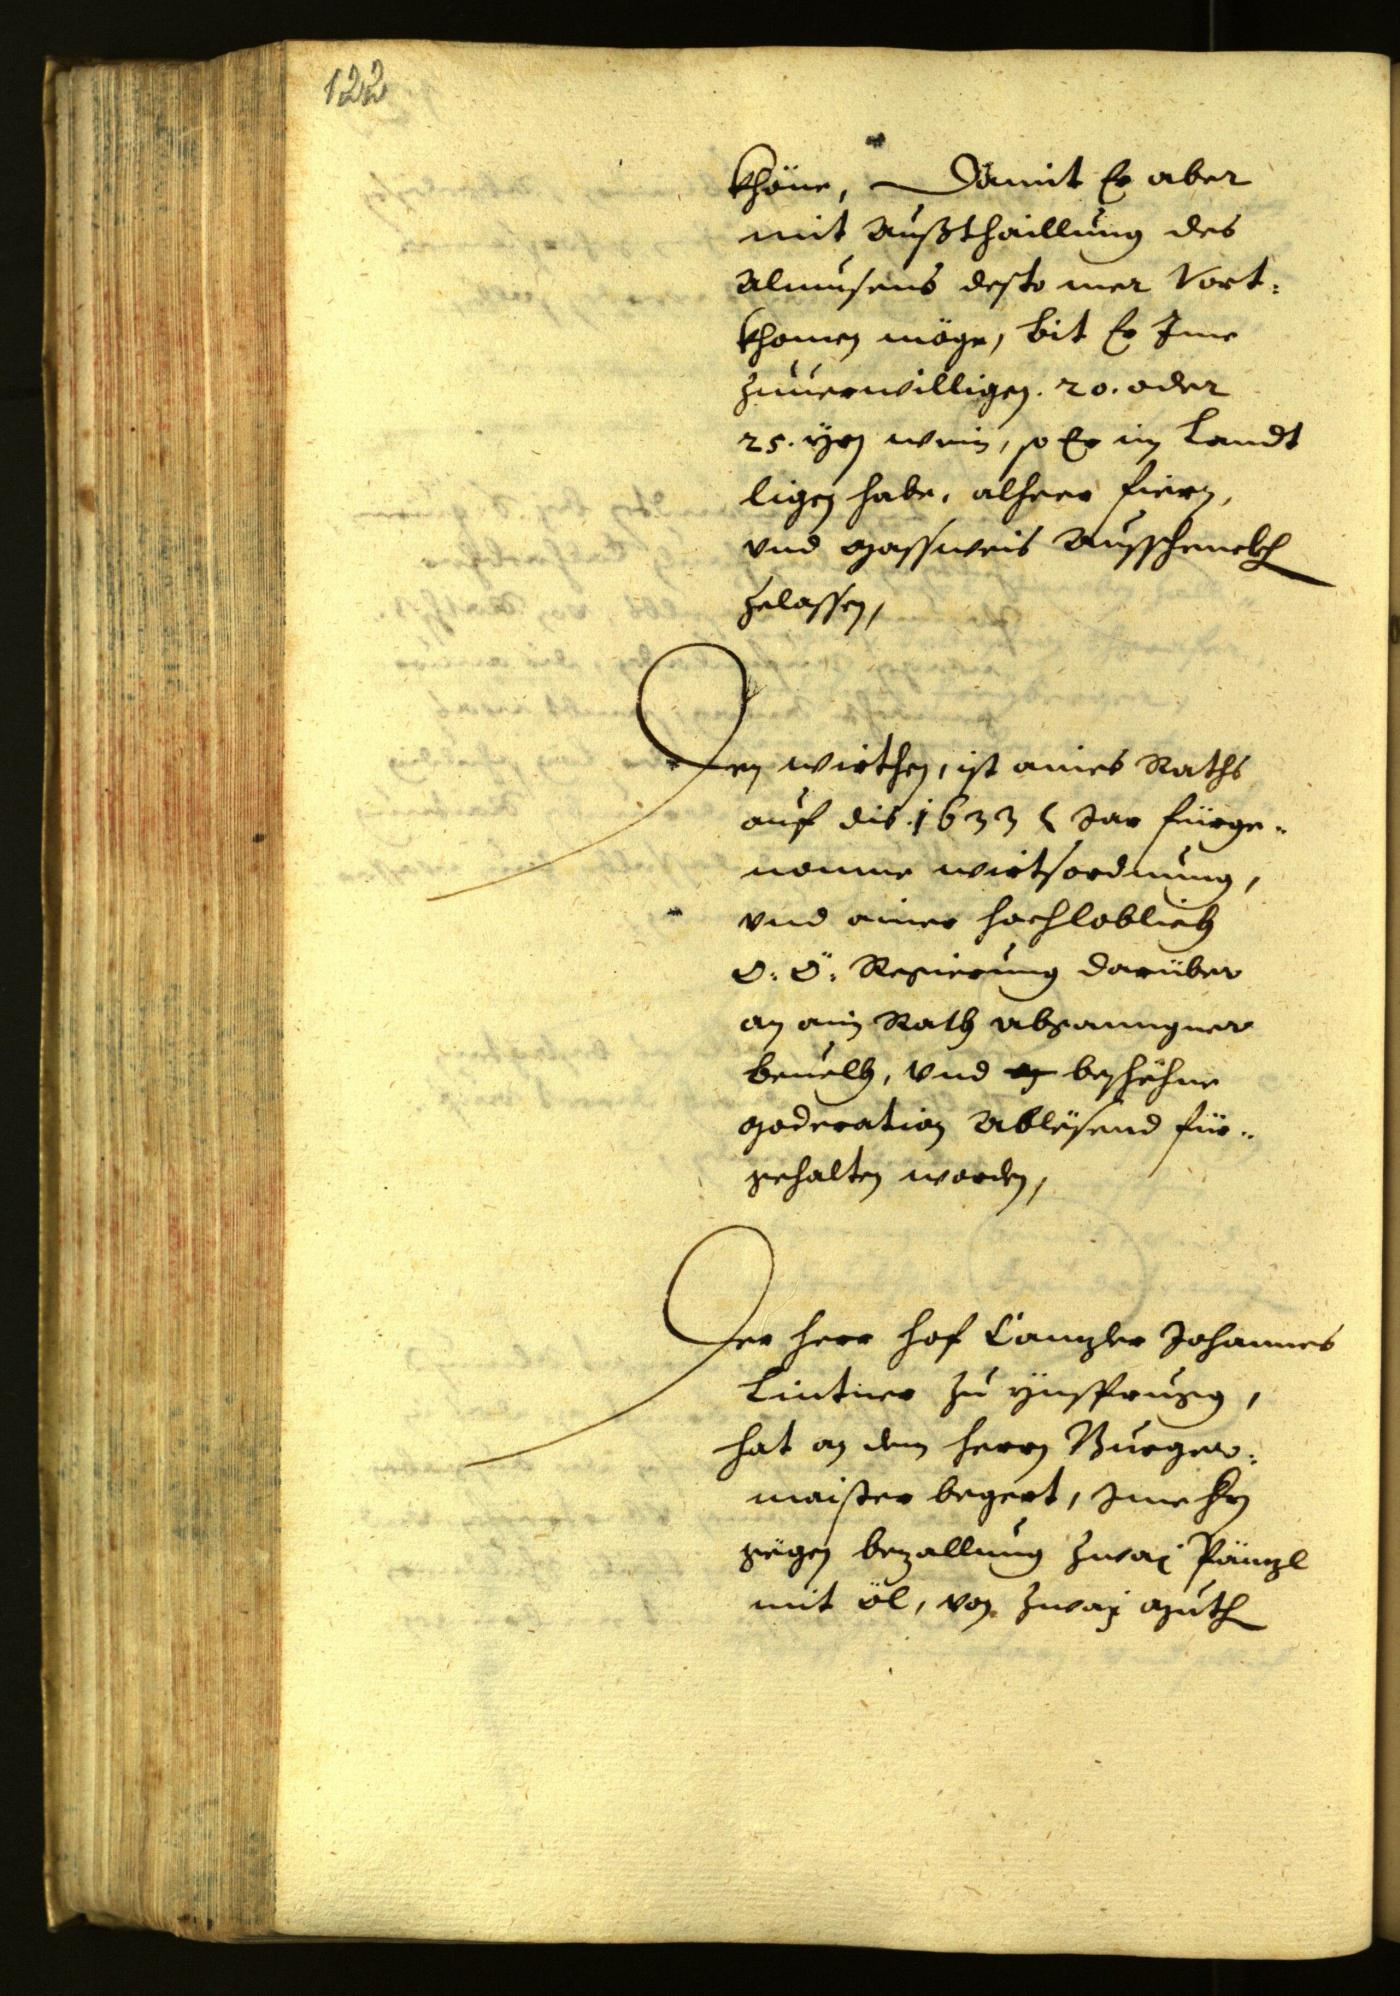 122
khöne, Damit Er aber
mit Außthaillung des
Almusens desto mer Vort=
khomen möge, bit Er Ime
zuuerwilligen. 20. oder
25. Yrn wein, so Er im Landt
ligen habe, alheer fiern,
vnd massweis Ausschenckh
zelassen,
Den wirthen, ist aines Raths
auf dis 1633 Jar fürge=
nomne wirtsordnung,
vnd ainer hochloblich
O: Ö: Regierung darüber
an ain Rath abganngner
beuelh, vnd beschehne
moderation Ablësend für=
gehalten worden,
Der herr hof Canzler Johannes
Lintner zu Ynsprugg,
hat an den herrn Burger=
maister begert, Ime
gegen bezallung zwaj Pänzl
mit öl, von zwaj